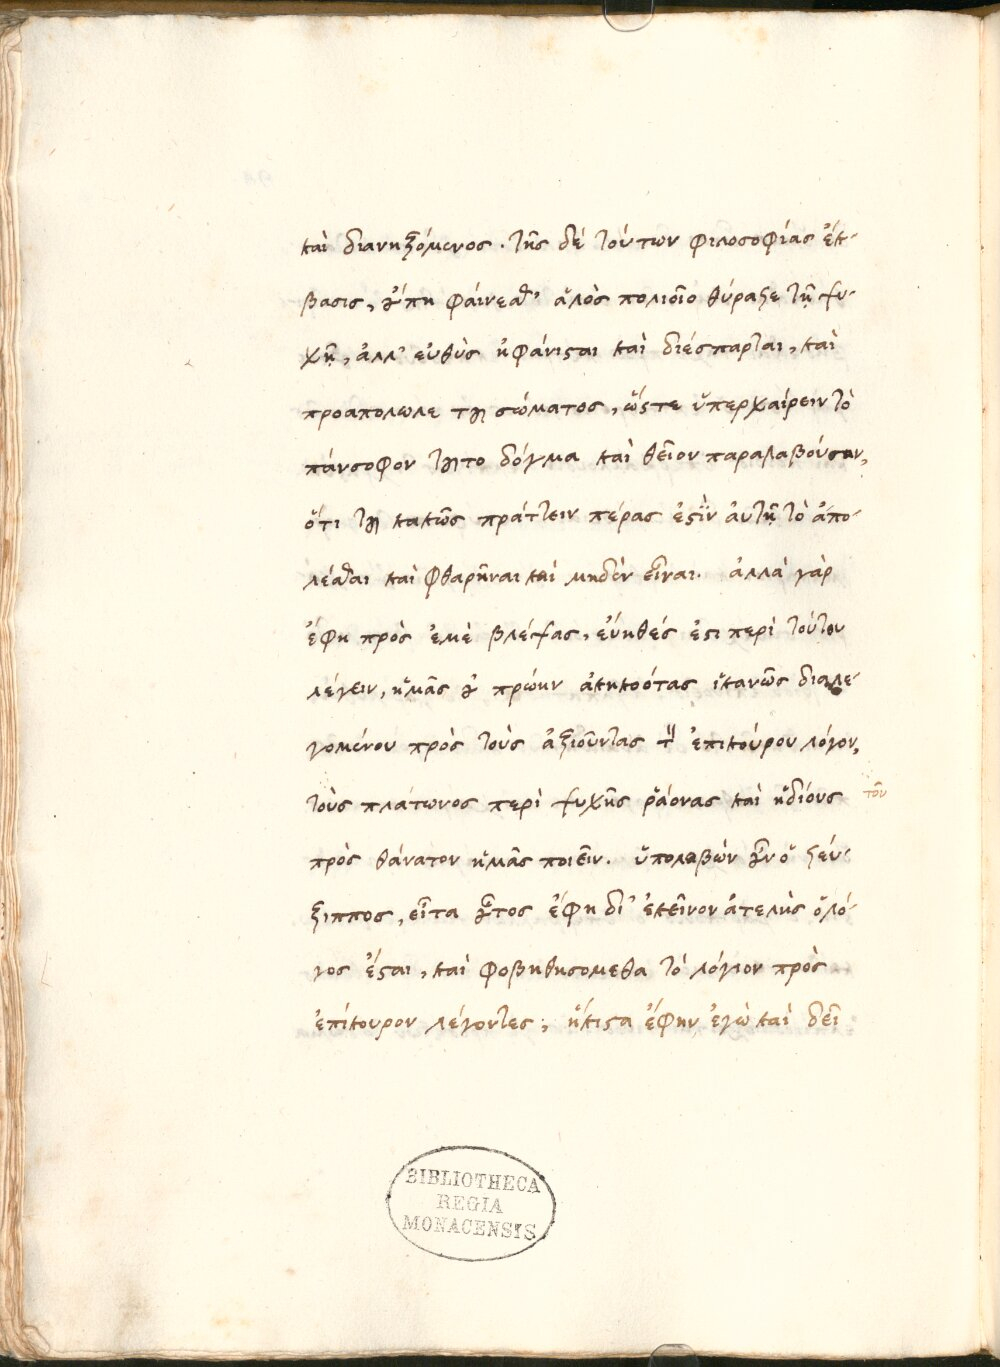 καὶ διανηξόμενος. τῆς δὲ τούτων φιλοσοφίας ἔκ-
βασις, οὔπη φαίνεσθ' ἁλὸς πολιοῖο θύραζε τῇ ψυ-
χῇ, ἀλλ' εὐθὺς ἠφάνισται καὶ διέσπαρται, καὶ
προαπόλωλε τοῦ σώματος, ὥστε ὑπερχαίρειν τὸ
πάνσοφον τοῦτο δόγμα καὶ θεῖον παραλαβοῦσαν,
ὅτι τοῦ κακῶς πράττειν πέρας ἐστὶν αὐτῇ τὸ ἀπο-
λέσθαι καὶ φθαρῆναι καὶ μηδὲν εἶναι. ἀλλὰ γὰρ
ἔφη πρὸς ἐμὲ βλέψας, εὔηθές ἐστι περὶ τούτου
λέγειν, ἡμᾶς οὐ πρώην ἀκηκοότας ἱκανῶς διαλε-
γομένου πρὸς τοὺς ἀξιοῦντας τὸν ἐπικούρου λόγον,
τοὺς πλάτωνος περὶ ψυχῆς ῥάονας καὶ ἡδίους τοῦ
πρὸς θάνατον ἡμᾶς ποιεῖν. ὑπολαβὼν οὖν ὁ ζεύ-
ξιππος, εἶτα οὗτος ἔφη δι' ἐκεῖνον ἀτελὴς ὁ λό-
γος ἔσται, καὶ φοβηθησόμεθα τὸ λόγιον πρὸς
ἐπίκουρον λέγοντες; ἥκιστα ἔφην ἐγὼ καὶ δεῖ
BIBLIOTHECA
REGIA
MONACENSIS